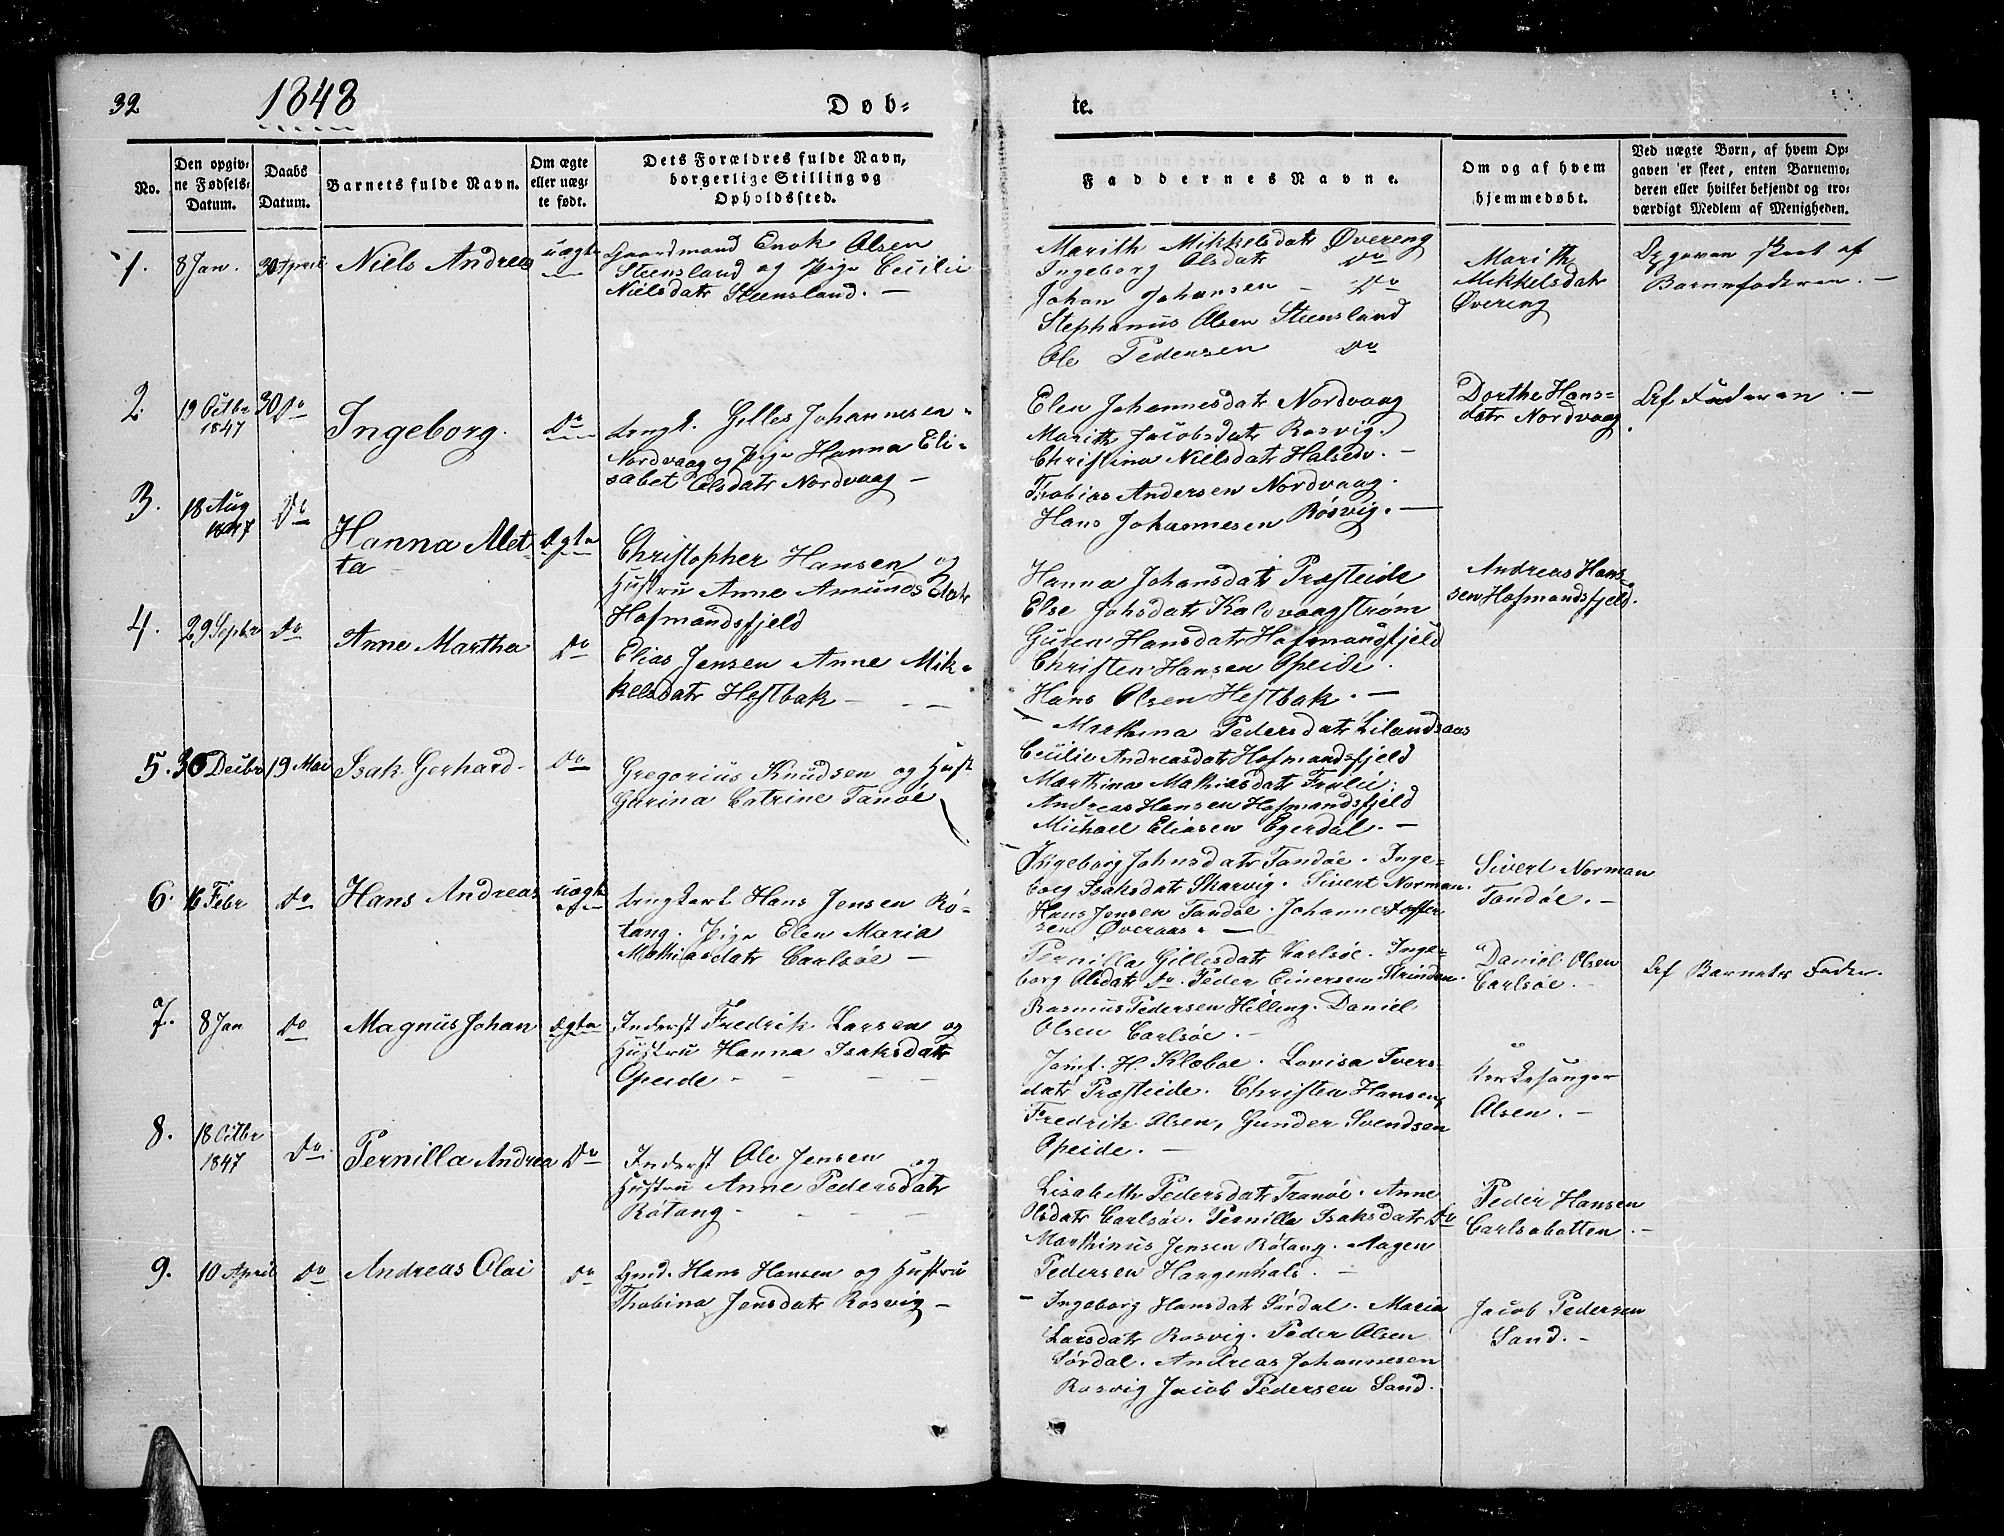 32
1848
Døb-
te.
No.
Den opgiv-
ne Fødsels-
Datum.
Daabs
Datum.
Barnets fulde Navn.
Om ægte
eller uæg-
te født.
Dets Forældres fulde Navn,
borgerlige Stilling og
Opholdssted.
Faddernes Navne.
Om og af hvem
hjemmedøbt.
Ved uægte Børn, af hvem Op-
gaven er skeet, enten Barnemo-
deren eller hvilket bekjendt og tro-
værdigt Medlem af Menigheden.
1.
8 Jan.
30 April
Niels Andreas
uægte
Gaardmand Enok Olsen
Steensland og Pige Cecilie
Nielsdatr Steensland. —
Marith Mikkelsdatr Øvereng
Ingeborg Olsdatr Do
Johan Johansen - Do
Stephanus Olsen Steensland
Ole Pedersen Do
Marith
Mikkelsdatr
Øvereng
Opgaven skeet af
Barnefaderen. —
2.
19 Octbr
1847
30 Do
Ingeborg.
Do
Ungk. Gilles Johannesen
Nordvaag og Pige Hanna Eli-
sabet Olsdatr Nordvaag —
Elen Johannesdatr Nordvaag
Marith Jacobsdatr Rosvig.
Christina Nielsdatr Halsen. -
Thobias Andersen Nordvaag.
Hans Johannesen Røsvig. —
Dorthe Hans-
datr Nordvaag.
Af Faderen. —
3.
18 Aug
1847
Do
Hanna Met-
ta
ægte
Christopher Hansen og
Hustru Anne Amundsdatr
Hofmandsfjeld
Hanna Johansdatr Præsteide
Else Johsdatr Kaldvaagstrøm
Guren Hansdatr Hofmandsfjeld
Christen Hansen Opeide.
Hans Olsen Hestbak. —
Andreas Han-
sen Hofmandsfjeld.
4.
29 Septbr
Do
Anne Martha
Do
Elias Jensen Anne Mik-
kelsdatr Hestbak — - —
- Marthina Pedersdatr Lilandsaas
Cecilie Andreasdatr Hofmandsfjeld
Marthina Mathiasdatr
Andreas Hansen Hofmandsfjeld
Michael Eliasen Egerdal. —
5.
30 Decbr
19 Mai
Isak Gerhard -
Do
Gregorius Knudsen og Hust
Gurina Catrine Tanöe
Ingeborg Johnsdatr Tandöe. Inge-
borg Isaksdatr Skarvig. Sivert Norman.
Hans Jensen Tandöe. Johannes
sen Øveraas. —
Sivert Norman
Tandöe. -
6.
16 Febr
Do
Hans Andreas
uægte
Ungkarl Hans Jensen Rø-
tang. Pige Elen Maria
Mathiasdatr Carlsöe —
Pernilla Gillesdatr Carlsöe. Inge-
borg Olsdatr Do. Peder Einersen Strinden.
Rasmus Pedersen Hilling. Daniel
Olsen Carlsöe. —
Daniel Olsen
Carlsöe. -
Af Barnets Fader.
7.
8 Jan
Do
Magnus Johan
ægte
Inderst Fredrik Larsen og
Hustru Hanna Isaksdatr
Opeide - - - -
Jomf. H. Klæboe. Lovisa Ivers-
datr Præsteide. Christen Hansen,
Fredrik Olsen, Gunder Svendsen
Opeide. —
Kirkesanger
Olsen. -
8.
18 Octbr
1847
Do
Pernilla Andrea
Do
Inderst Ole Jensen og
Hustru Anne Pedersdatr
Røtang - - - -
Lisabeth Pedersdatr Tranöe. Anne
Olsdatr Carlsöe. Pernilla Isaksdatr Do
Marthinus Jensen Røtang. Aagen
Pedersen Haugenhals. —
Peder Hansen
Carlsobotten. -
9.
10 April
Do
Andreas Olai
Do
Gmd. Hans Hansen og Hustru
Thobina Jensdatr Rosvig —
- Ingeborg Hansdatr Sørdal. Maria
Larsdatr Rosvig. Peder Olsen
Sørdal. Andreas Johannesen
Rosvig Jacob Pedersen Sand.
Jacob Pedersen
Sand. -